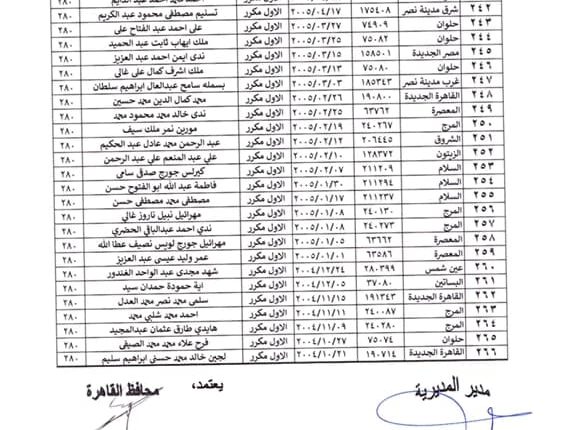 ٢٤٢ شرق مدينة نصر ١٧٥٤٠٨ ٢٠٠٥/٠٤/١٧ الاول مكرر تسنيم مصطفى محمود عبد الكريم ٢٨٠
٢٤٣ حلوان ٧٤٩٠٩ ٢٠٠٥/٠٣/٢٧ الاول مكرر على احمد عبد الفتاح على ٢٨٠
٢٤٤ حلوان ٧٥٠٨٢ ٢٠٠٥/٠٣/٢٥ الاول مكرر ملك ايهاب ثابت عبد الحميد ٢٨٠
٢٤٥ مصر الجديدة ١٥٨٥٠١ ٢٠٠٥/٠٣/١٥ الاول مكرر ندى ايمن احمد عبد العزيز ٢٨٠
٢٤٦ حلوان ٧٥٠٨٠ ٢٠٠٥/٠٣/١٣ الاول مكرر ملك اشرف كمال على غالى ٢٨٠
٢٤٧ غرب مدينة نصر ١٨٥٣٤٣ ٢٠٠٥/٠٣/٠٣ الاول مكرر بسمله سامح عبدالعال ابراهيم سلطان ٢٨٠
٢٤٨ القاهرة الجديدة ١٩٠٨٠٠ ٢٠٠٥/٠٢/٢٦ الاول مكرر محمد كمال الدين محمد حسين ٢٨٠
٢٤٩ المعصرة ٦٣٧٦٢ ٢٠٠٥/٠٢/٢٥ الاول مكرر ندى خالد محمد محمود محمد ٢٨٠
٢٥٠ المرج ٢٤٠٢٦٧ ٢٠٠٥/٠٢/١٩ الاول مكرر مورين نمر ملك سيف ٢٨٠
٢٥١ الشروق ٢٠٦٤٤٥ ٢٠٠٥/٠٢/١٢ الاول مكرر عبد الرحمن محمد عادل عبد الحكيم ٢٨٠
٢٥٢ الزيتون ١٢٨٣٧٢ ٢٠٠٥/٠٢/١٠ الاول مكرر على عبد المنعم على عبد الرحمن ٢٨٠
٢٥٣ السلام ٢١١٢٠٩ ٢٠٠٥/٠٢/٠١ الاول مكرر كيرلس جورج صدقى سامى ٢٨٠
٢٥٤ السلام ٢١١٢٩٤ ٢٠٠٥/٠١/٣٠ الاول مكرر فاطمة عبد الله ابو الفتوح حسن ٢٨٠
٢٥٥ السلام ٢١١٢٣٧ ٢٠٠٥/٠١/١٧ الاول مكرر مصطفى محمد مصطفى حسن ٢٨٠
٢٥٦ المرج ٢٤٠١٣٠ ٢٠٠٥/٠١/٠٨ الاول مكرر مهرائيل نبيل ناروز غالي ٢٨٠
٢٥٧ المرج ٢٤٠٢٧٣ ٢٠٠٥/٠١/٠٨ الاول مكرر ندي احمد عبدالباقي الحضري ٢٨٠
٢٥٨ المعصرة ٦٣٦٦٢ ٢٠٠٥/٠١/٠٥ الاول مكرر مهرائيل جورج لويس نصيف عطا الله ٢٨٠
٢٥٩ المعصرة ٦٣٥٨٦ ٢٠٠٥/٠١/٠١ الاول مكرر عمر وليد عيسى عبد العزيز ٢٨٠
٢٦٠ عين شمس ٢٨٠٣٩٩ ٢٠٠٤/١٢/٢٤ الاول مكرر شهد مجدى عبد الواحد الغندور ٢٨٠
٢٦١ البساتين ٣٧٠٨٠ ٢٠٠٤/١٢/٠٥ الاول مكرر اية حمودة حمدان سيد ٢٨٠
٢٦٢ القاهرة الجديدة ١٩١٣٤٣ ٢٠٠٤/١١/١٥ الاول مكرر سلمى محمد نصر محمد العدل ٢٨٠
٢٦٣ المرج ٢٤٠٠٨٧ ٢٠٠٤/١١/١١ الاول مكرر احمد محمد شلبي محمد ٢٨٠
٢٦٤ المرج ٢٤٠٢٨٠ ٢٠٠٤/١١/٠٩ الاول مكرر هايدي طارق عثمان عبدالمجيد ٢٨٠
٢٦٥ حلوان ٧٥٠٧٤ ٢٠٠٤/١٠/٢٧ الاول مكرر فرح علاء محمد محمد الصيفى ٢٨٠
٢٦٦ القاهرة الجديدة ١٩٠٧١٤ ٢٠٠٤/١٠/٢١ الاول مكرر لجين خالد محمد حسنى ابراهيم سليم ٢٨٠
مدير المديرية يعتمد، محافظ القاهرة